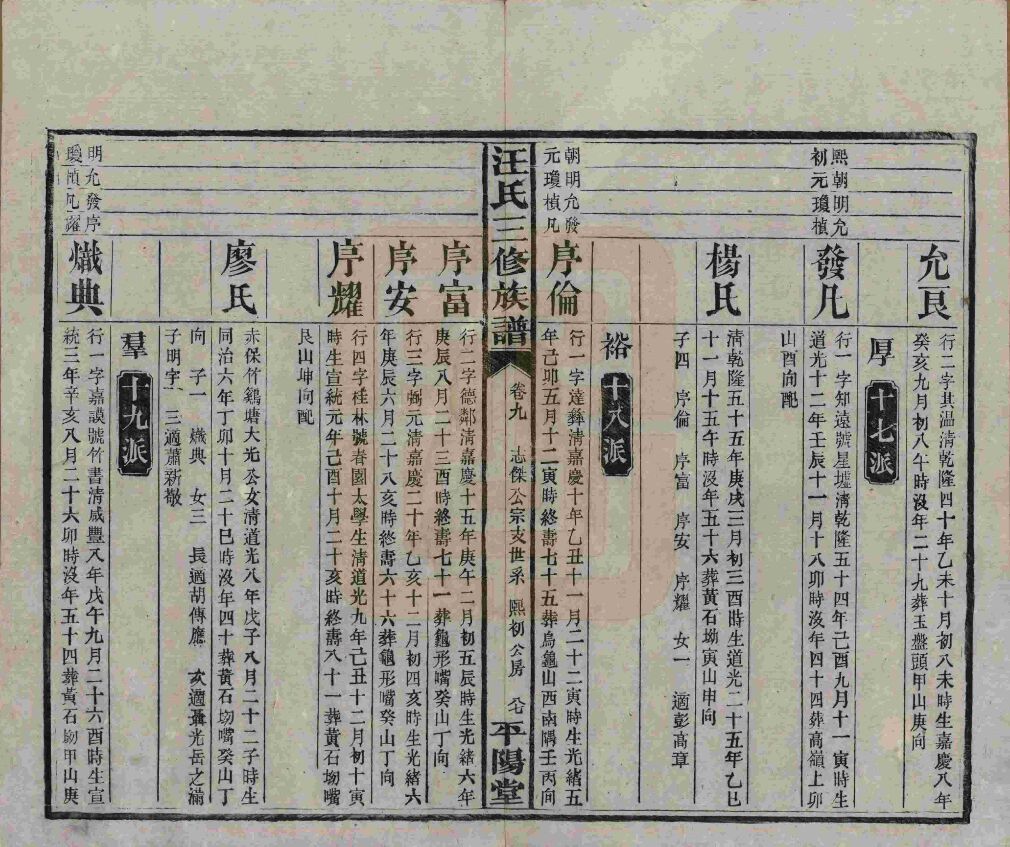 允良
行二字其温清乾隆四十年乙未十月初八未時生嘉慶八年
癸亥九月初八午時沒年二十九葬玉盤頭甲山庚向
厚 十七派
熙朝明允
初元瓊楨
發凡
行一字知遠號星墟清乾隆五十四年己酉九月十一寅時生
道光十二年壬辰十一月十八卯時沒年四十四葬高嶺上卯
山酉向配
楊氏
清乾隆五十五年庚戌三月初三酉時生道光二十五年乙巳
十一月十五午時沒年五十六葬黃石坳寅山申向
子四 序倫 序富 序安 序耀 女一 適彭高章
裕 十八派
朝明允發
元瓊楨凡
序倫
行一字達彝清嘉慶十年乙丑十一月二十二寅時生光緒五
年己卯五月十二寅時終壽七十五葬烏龜山西南隅壬丙向
汪氏三修族譜 卷九 志傑公宗支世系 熙初公房 平陽堂
序富
行二字德鄰清嘉慶十五年庚午二月初五辰時生光緒六年
庚辰八月二十三酉時終壽七十一葬龜形嘴癸山丁向
序安
行三字弼元清嘉慶二十年乙亥十二月初四亥時生光緒六
年庚辰六月二十八亥時終壽六十六葬龜形嘴癸山丁向
序耀
行四字桂林號春園太學生清道光九年己丑十二月初十寅
時生宣統元年己酉十月二十亥時終壽八十一葬黃石坳
艮山坤向配
廖氏
赤保竹鷄塘大光公女清道光八年戊子八月二十二子時生
同治六年丁卯十月二十巳時沒年四十葬黃石坳嘴癸山丁
向 子一 熾典 女三 長適胡傳應 次適聶光岳之滿
子明宇 三適蕭新敬
羣 十九派
明允發序
瓊楨凡耀
熾典
行一字嘉謨號竹書清咸豐八年戊午九月二十六酉時生宣
統三年辛亥八月二十六卯時沒年五十四葬黃石坳甲山庚